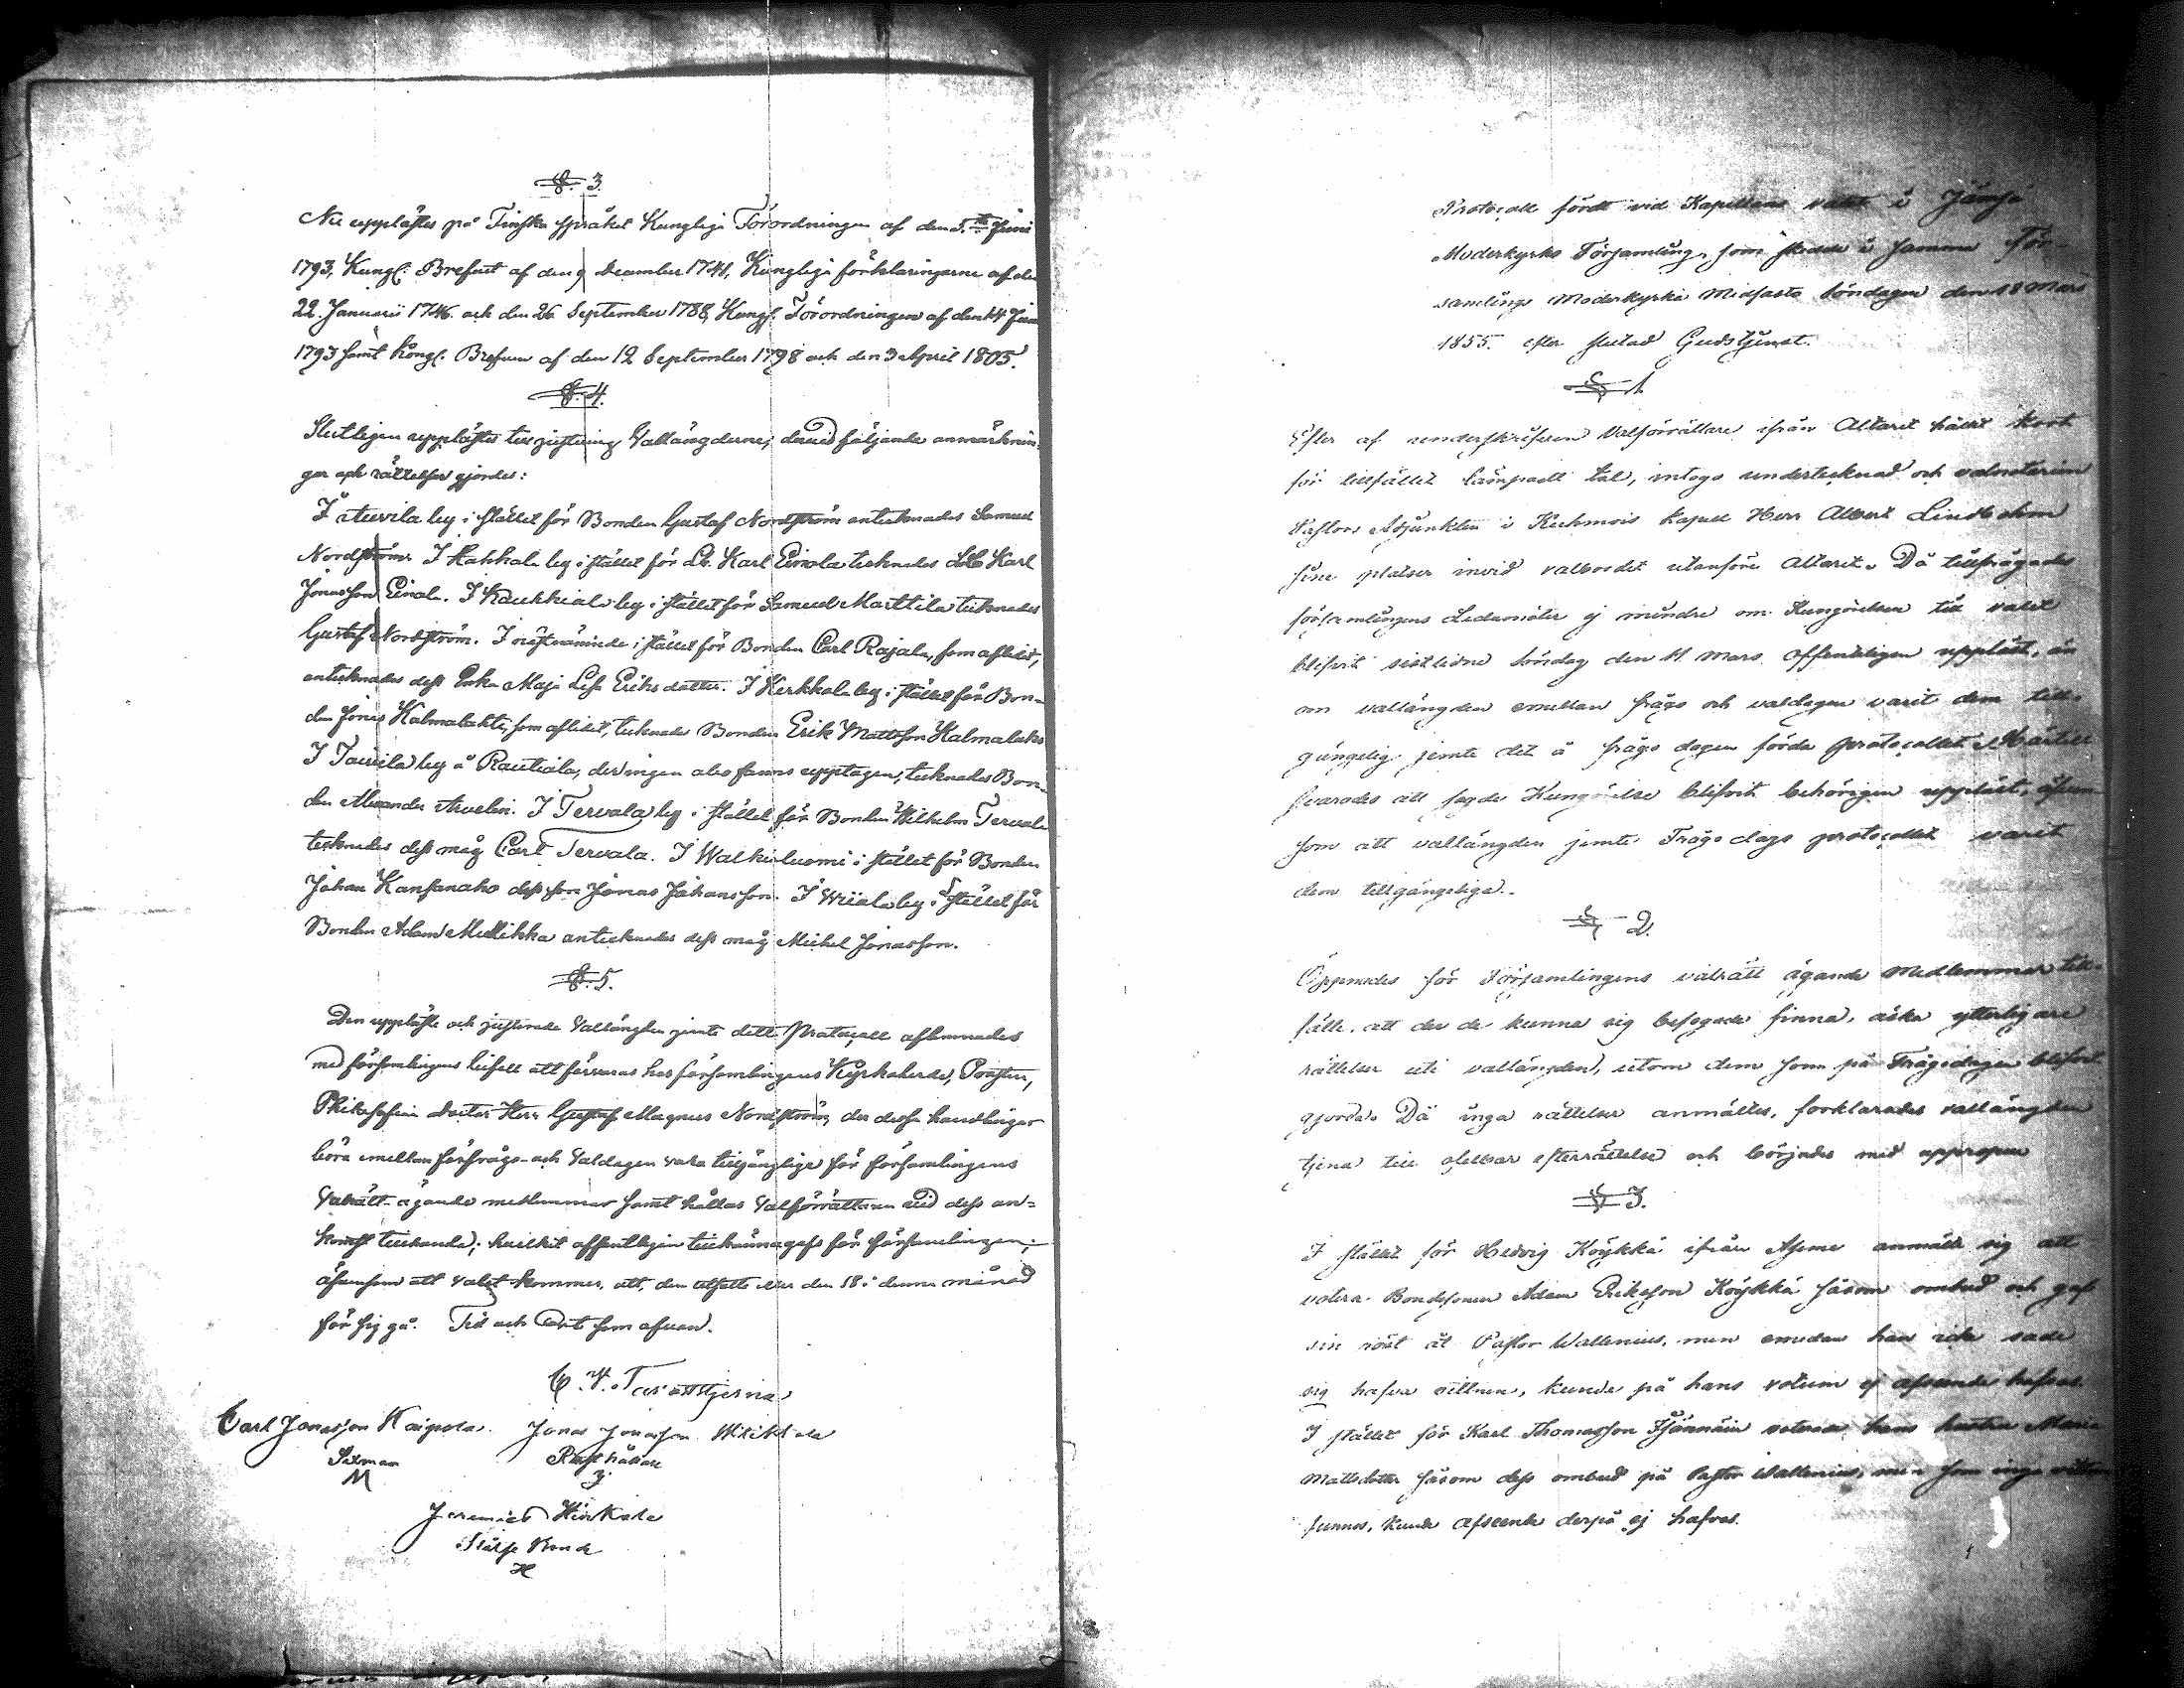 §. 3.
Nu upplästes på Finska språket Kungliga Förordningen af den 5.te Juni
1793, Kungl: Brefvet af den 9 December 1741, Kungliga förklaringarne af den
22. Januarii 1746. och den 26 September 1788, Kungl. Förordningen af den 14 Juni
1793 samt Kongl. Brefven af den 12 September 1798 och den 3 April 1805.
§. 4.
Slutligen upplästes till justering Vallängderne, dervid följande anmärknin-
gar och rättelser gjordes:
I Auvila by i stället för Bonden Gustaf Nordström antecknades Samuel
Nordström. I Hakkala by i stället för Karl Einola tecknades Karl
Jonasson Einola. I Kaukkiala by i stället för Samuel Marttila tecknades
Gustaf Nordström. I nästnämnde i stället för Bonden Carl Rajala, som aflidit,
antecknades dess Enka Maja Lisa Eriks dotter. I Kerkkola by i stället för Bon-
den Jonas Kalmalahti, som aflidit, tecknades Bonden Erik Mattsson Kalmalahti
I Juvila by å Rautiala, der ingen åbo fanns upptagen, tecknades Bon-
den Alexander Arvelin. I Tervala by i stället för Bonden Wilhelm Tervala
tecknades dess måg Carl Tervala. I Walkeluomi i stället för Bonden
Johan Kansanaho dess son Jonas Johansson. I Wiiala by i stället för
Bonden Adam Mellikka antecknades dess måg Michel Jonasson.
§. 5.
Den upplästa och justerade Vallängden jemte detta Protocoll aflemnades
med församlingens bifall att förvaras hos församlingens Kyrkoherde, Prosten,
Philosophiæ Doctor Herr Gustaf Magnus Nordström, der dessa handlingar
böra emellan förfrågo- och Valdagen vara tillgänglige för församlingens
Valrätt ägande medlemmar samt hållas Valförrättaren vid dess an-
komst tillhanda; hvilket offentligen tillkännagafs för församlingen;
äfvensom att valet kommer, att, den utsatte eller den 18 i denna månad
för sig gå. Tid och Ort som ofvan.
C. V. Tavaststjerna
Carl Jonasson Kaipola. Jonas Jonasson Hiikkala
Sexman Rusthållare
M J
Jeremias Hinkala
Skatte Bonde
H
Protocoll fördt vid Kapellans valet i Jämsä
Moderkyrko Församling, som skedde i samma För-
samlings Moderkyrka Midfasto Söndagen den 18 Mars
1855. efter slutad Gudstjenst.
§ 1.
Efter af underskrifven Valförrättare ifrån Altaret hållit kort
för tillfället lämpadt tal, intogo undertecknad och valnotarien
Pastors Adjunkten i Kuhmois kapell Herr Albert Lindholm
sine platser invid valbordet utanföre Altaret. Då tillfrågades
församlingens Ledamöter ej mindre om Kungörelsen till valet
blifvit sistledne Söndag den 11 Mars offentligen uppläst, än
om vallängden emellan frågo och valdagen varit dem till-
gängelig jemte det å frågo dagen förda protocollet. Härtill
svarades att sagde Kungörelse blifvit behörigen uppläst, äfven-
som att vallängden jemte Frågo dags protocollet varit
dem tillgängeliga.
§ 2.
Öppnades för Församlingens valrätt ägande medlemmar till-
fälle, att der de kunna sig befogade finna, äska ytterligare
rättelser uti vallängden, utom dem som på Frågodagen blifvit
gjorda. Då inga rättelser anmältes, förklarades vallängden
tjena till ofelbar efterrättelse och börjades med uppropen
§ 3.
I stället för Hedvig Köykkä ifrån Asemo anmälte sig att
votera Bondesonen Adam Eriksson Köykkä såsom ombud och gaf
sin röst åt Pastor Wallenius, men emedan han icke sade
sig hafva vittnen, kunde på hans votum ej afseende hafvas
I stället för Karl Thomasson voterade hans hustru Maria
Mattsdotter såsom dess ombud på Pastor Wallenius, men som inga vittnen
funnos, kunde afseende derpå ej hafvas.